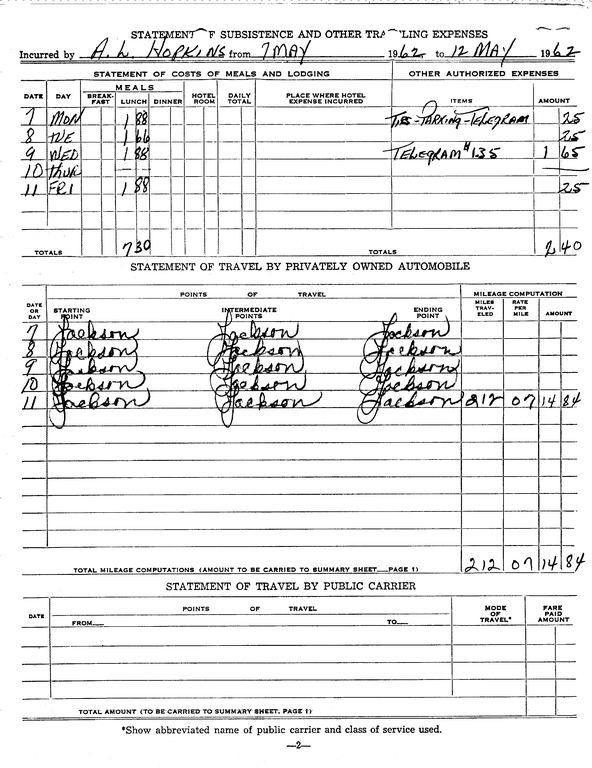 STATEMENT OF SUBSISTENCE AND OTHER TRAVELING EXPENSES
Incurred by A. L. HOPKINS from 7 MAY 1962 to 12 MAY 1962
STATEMENT OF COSTS OF MEALS AND LODGING OTHER AUTHORIZED EXPENSES
DATE DAY MEALS BREAK-FAST LUNCH DINNER HOTEL ROOM DAILY TOTAL PLACE WHERE HOTEL EXPENSE INCURRED ITEMS AMOUNT
7 MON 1 88 TIPS-PARKING-TELEGRAM 25
8 TUE 1 66 25
9 WED 1 88 TELEGRAM #135 1 65
10 THUR — —
11 FRI 1 88 25
TOTALS 7 30 TOTALS 2 40
STATEMENT OF TRAVEL BY PRIVATELY OWNED AUTOMOBILE
DATE OR DAY POINTS OF TRAVEL MILEAGE COMPUTATION
STARTING POINT INTERMEDIATE POINTS ENDING POINT MILES TRAV-ELED RATE PER MILE AMOUNT
7 Jackson Jackson Jackson
8 Jackson Jackson Jackson
9 Jackson Jackson Jackson
10 Jackson Jackson Jackson
11 Jackson Jackson Jackson 212 07 14 84
TOTAL MILEAGE COMPUTATIONS (AMOUNT TO BE CARRIED TO SUMMARY SHEET PAGE 1) 212 07 14 84
STATEMENT OF TRAVEL BY PUBLIC CARRIER
DATE POINTS OF TRAVEL MODE OF TRAVEL* FARE PAID AMOUNT
FROM TO
TOTAL AMOUNT (TO BE CARRIED TO SUMMARY SHEET, PAGE 1)
*Show abbreviated name of public carrier and class of service used.
—2—